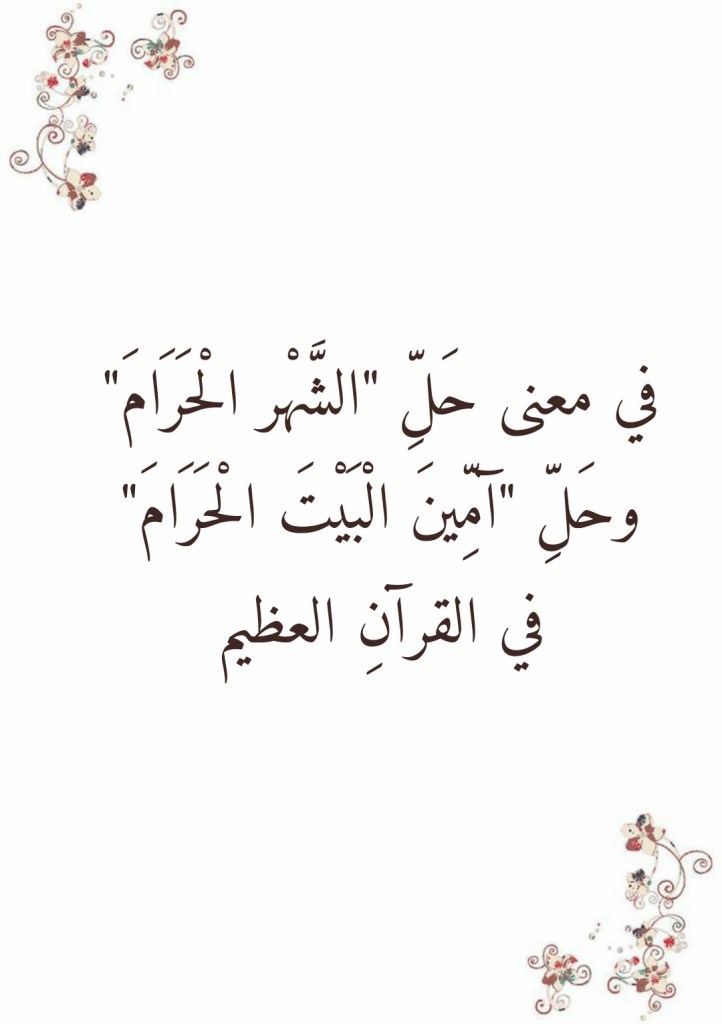 في معنى حَلِّ "الشَّهْر الْحَرَامَ"
وحَلِّ "آمِّينَ الْبَيْتَ الْحَرَامَ"
في القرآنِ العظيم